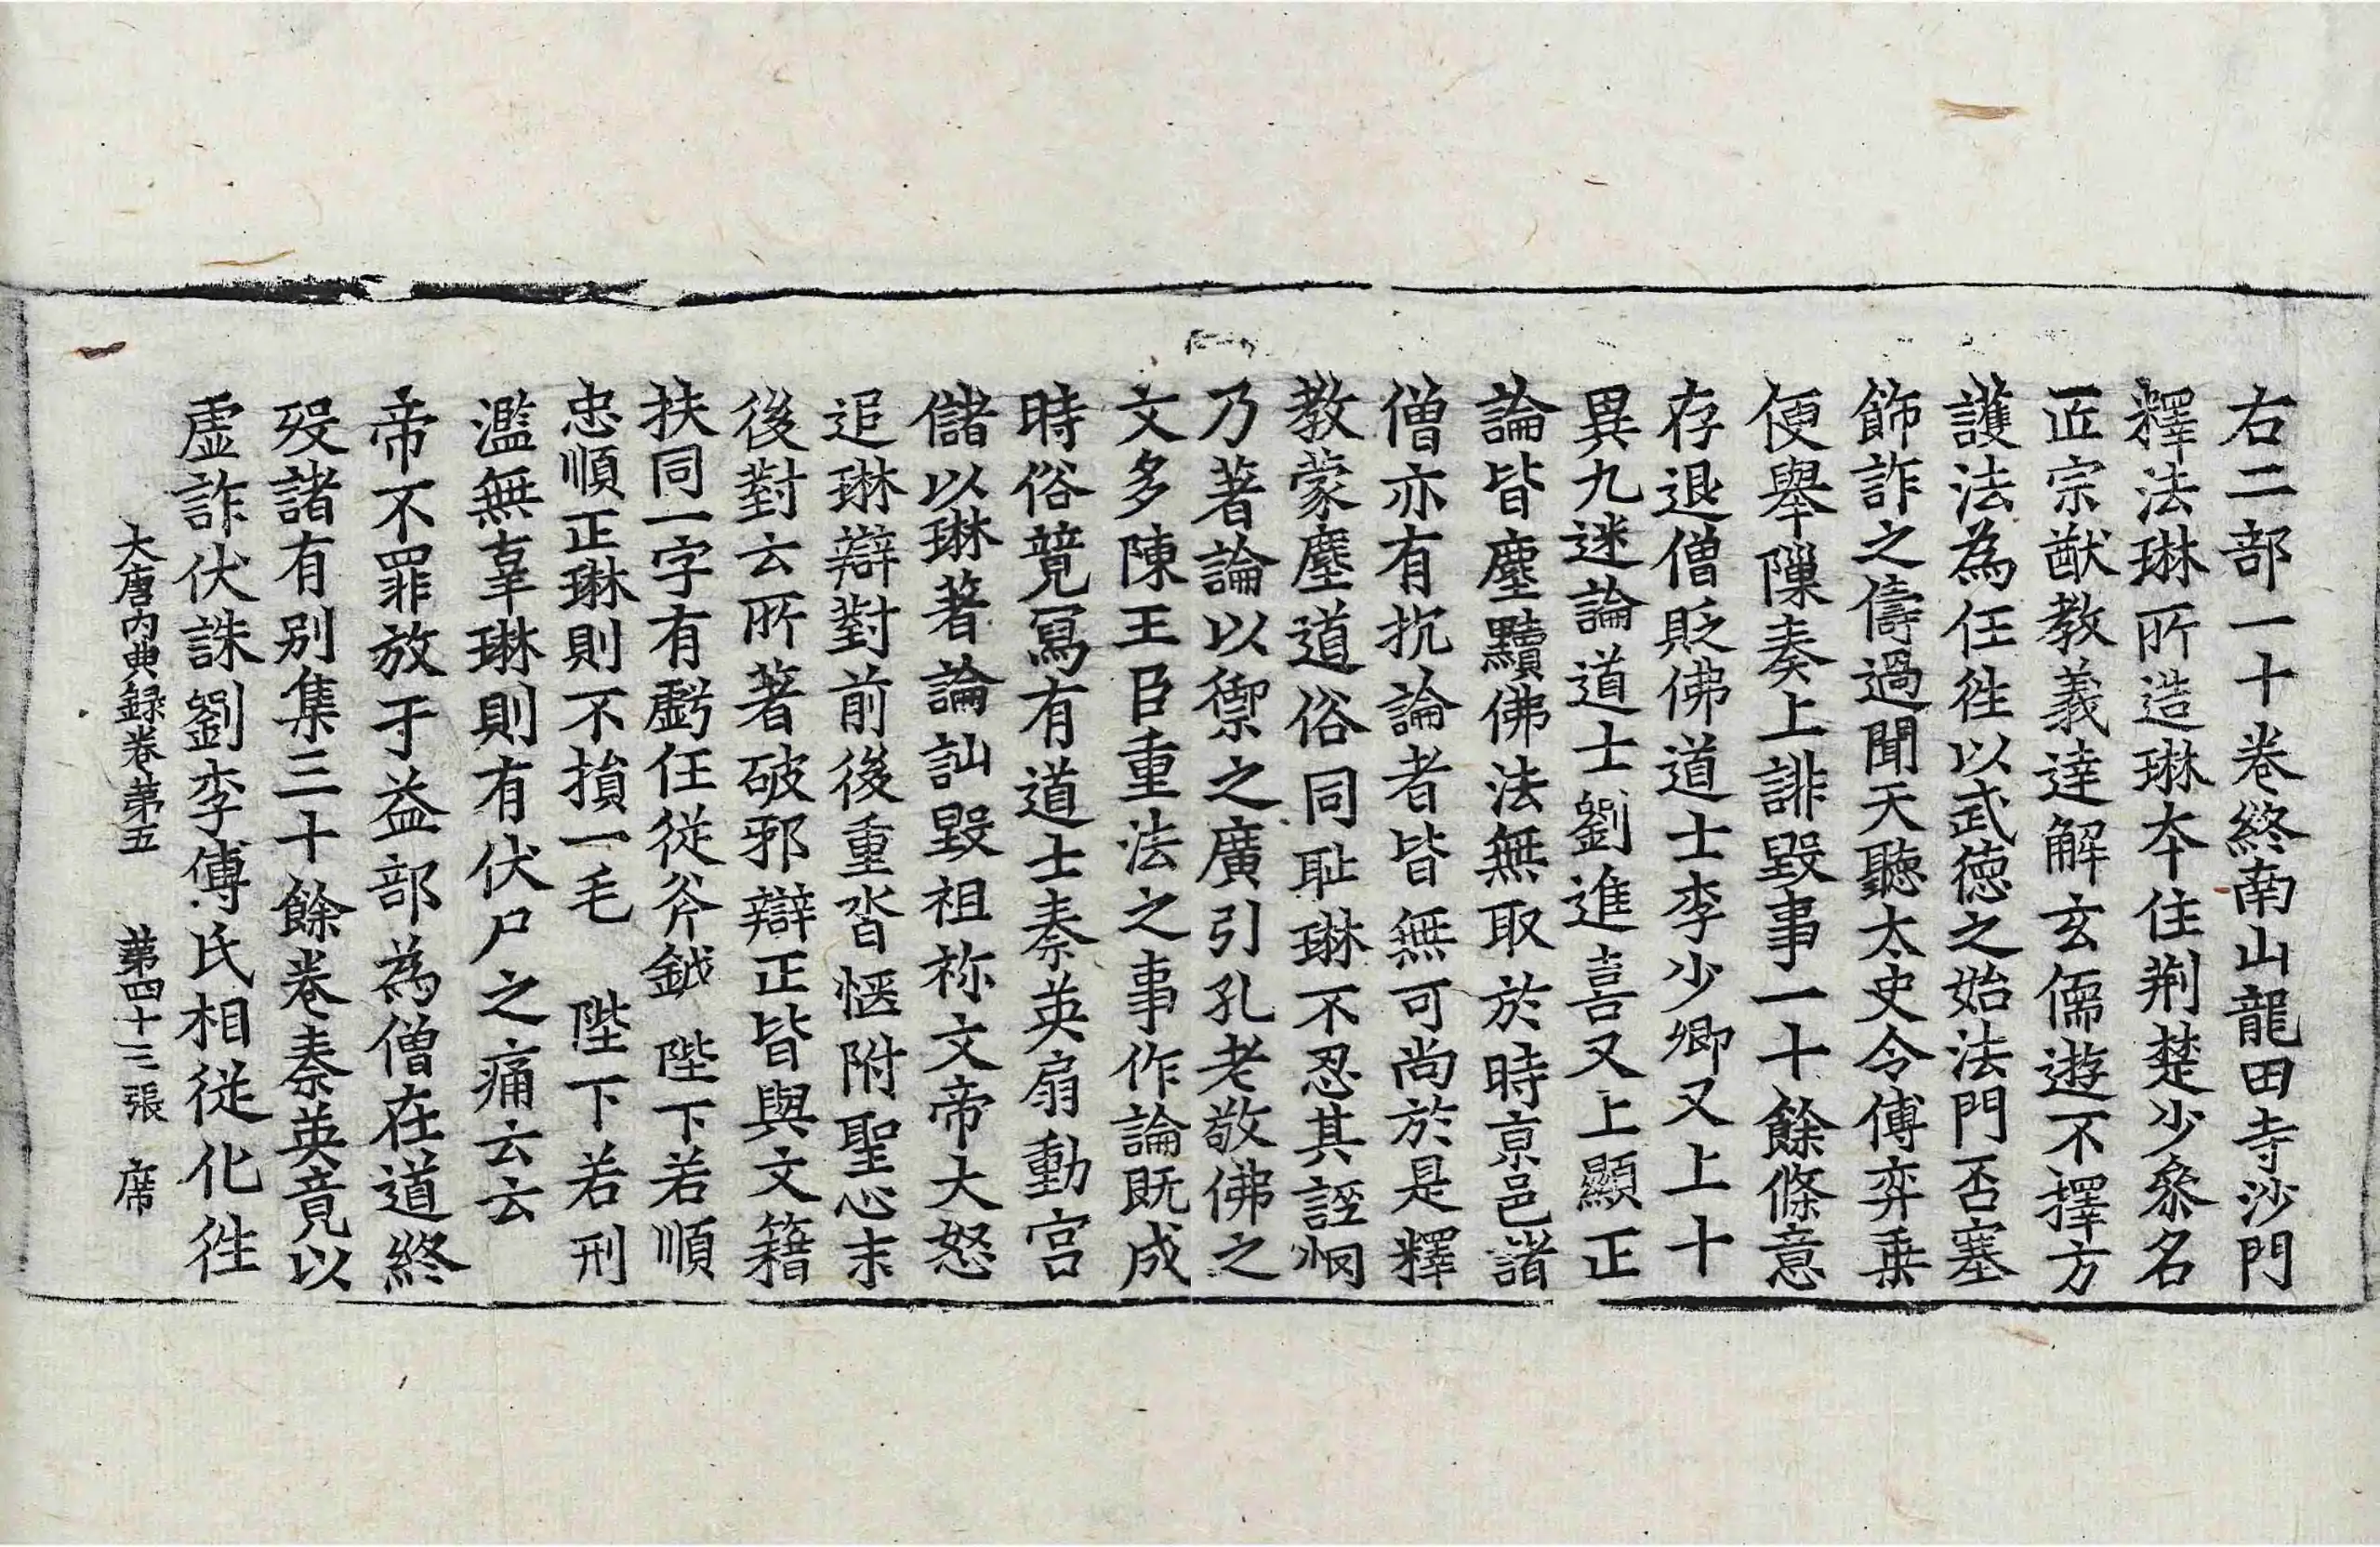 右二部一十卷終南山龍田寺沙門
釋法琳所造琳本住荆楚少叅名
匠宗猷教義達解玄儒遊不擇方
護法為任徃以武德之始法門否塞
飾詐之儔過聞天聽太史令傅弈乗
便舉隟奏上誹毀事一十餘條意
存退僧貶佛道士李少卿又上十
異九迷論道士劉進喜又上顯正
論皆塵黷佛法無取於時京邑諸
僧亦有抗論者皆無可尚於是釋
教蒙塵道俗同耻琳不忍其誣惘
乃著論以禦之廣引孔老敬佛之
文多陳王臣重法之事作論既成
時俗竟寫有道士秦英扇動宫
儲以琳著論訕毀祖祢文帝大怒
追琳辯對前後重沓愜附聖心末
後對云所著破邪辯正皆與文籍
扶同一字有虧任從斧鉞 陛下若順
忠順正琳則不損一毛 陛下若刑
濫無辜琳則有伏尸之痛云云
帝不罪放于益部為僧在道終
殁諸有別集三十餘卷秦英竟以
虛詐伏誅劉李傅氏相從化徃
大唐内典録卷第五 第四十三張 席